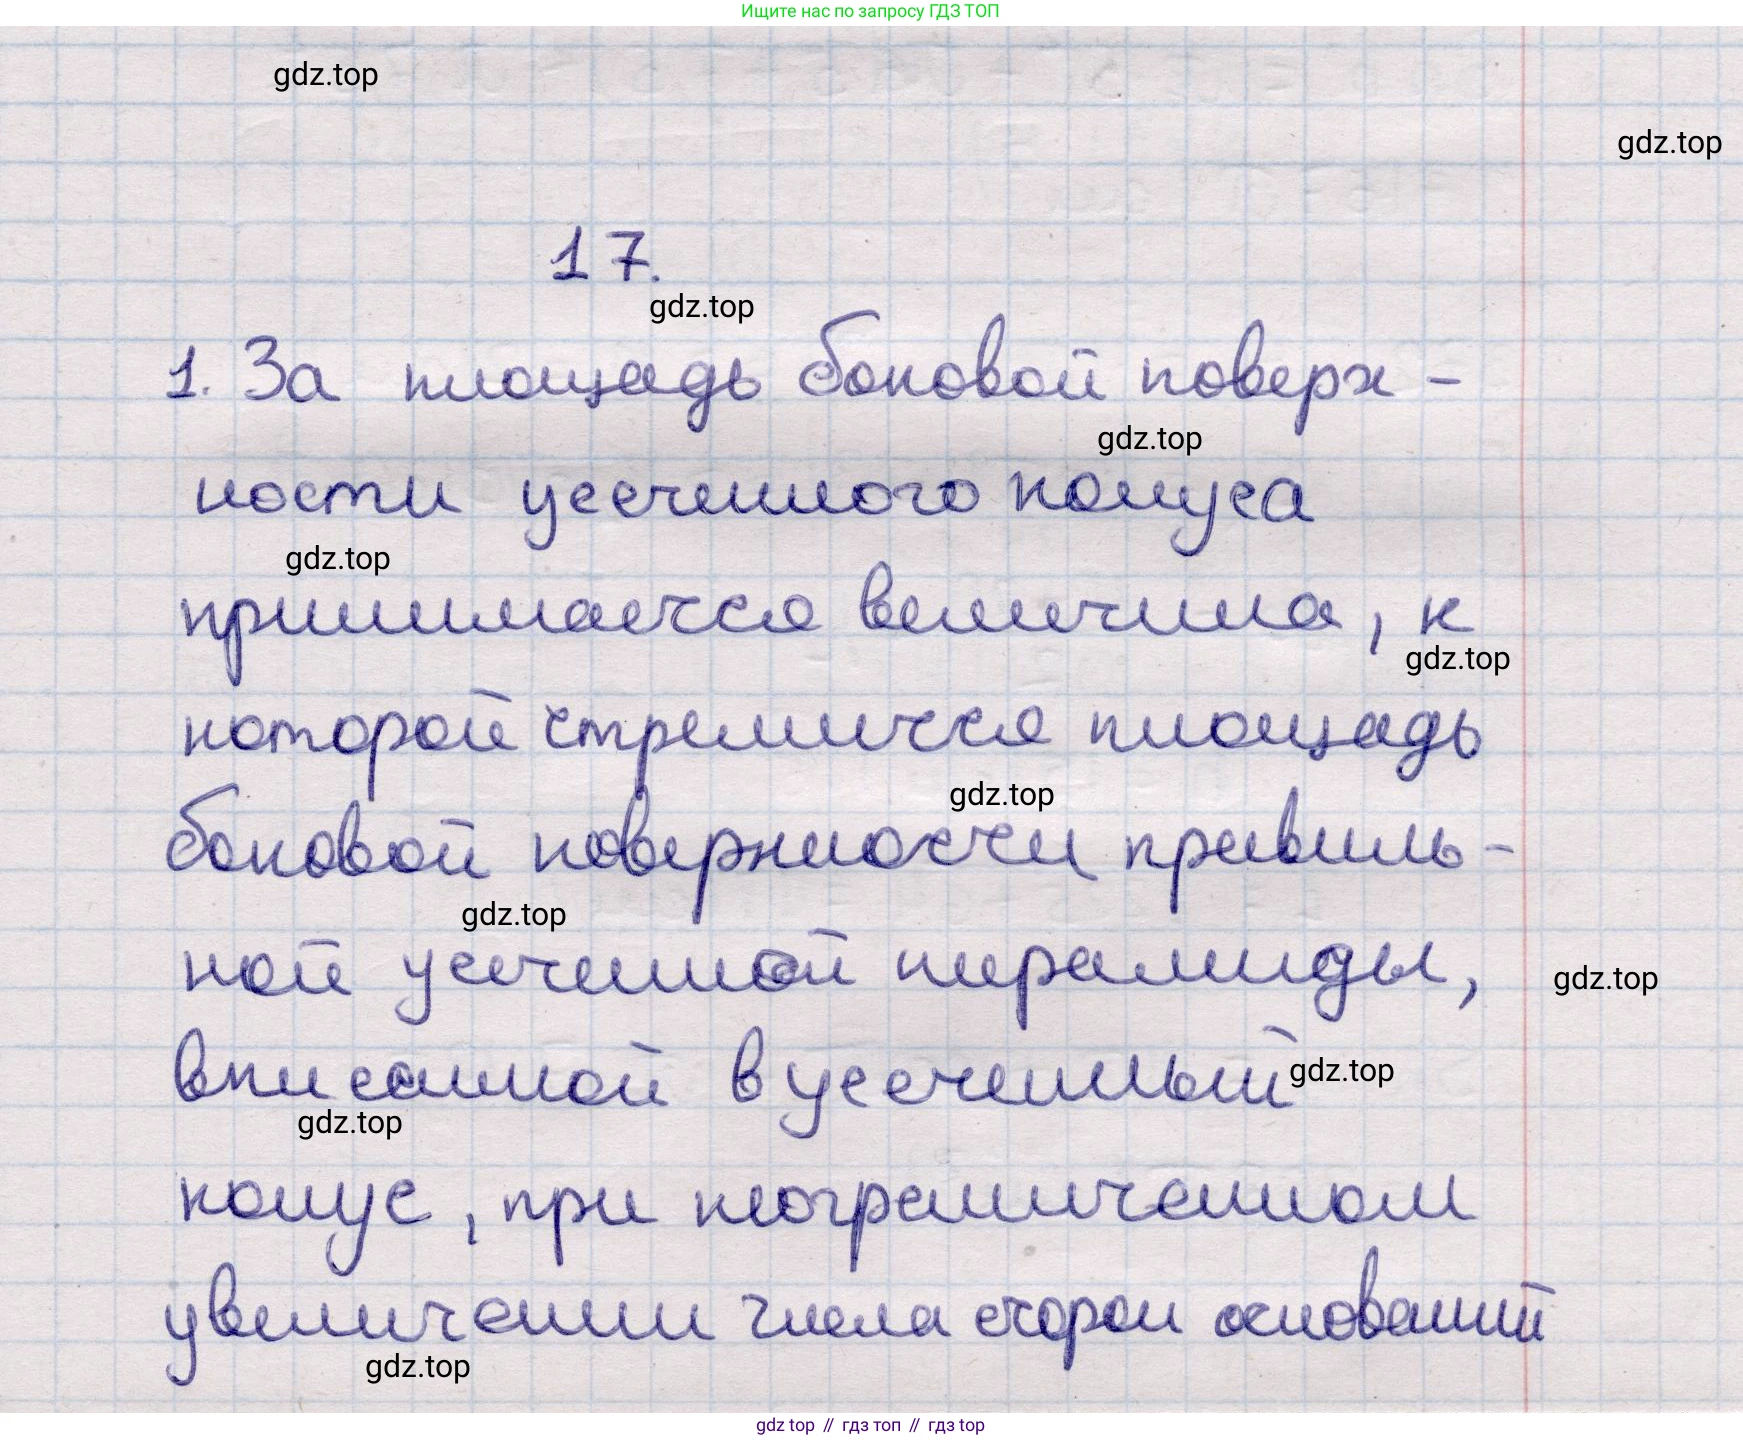 Ищите нас по запросу ГДЗ ТОП
gdz.top
gdz.top
17.
gdz.top
1. За площадь боковой поверх-
gdz.top
ности усеченного конуса
gdz.top
принимается величина, к
gdz.top
которой стремится площадь
gdz.top
боковой поверхности правиль-
gdz.top
ной усеченной пирамиды,
gdz.top
вписанной в усеченный
gdz.top
gdz.top
конус, при неограниченном
увеличении числа сторон оснований
gdz.top
gdz top // гдз топ // гдз top